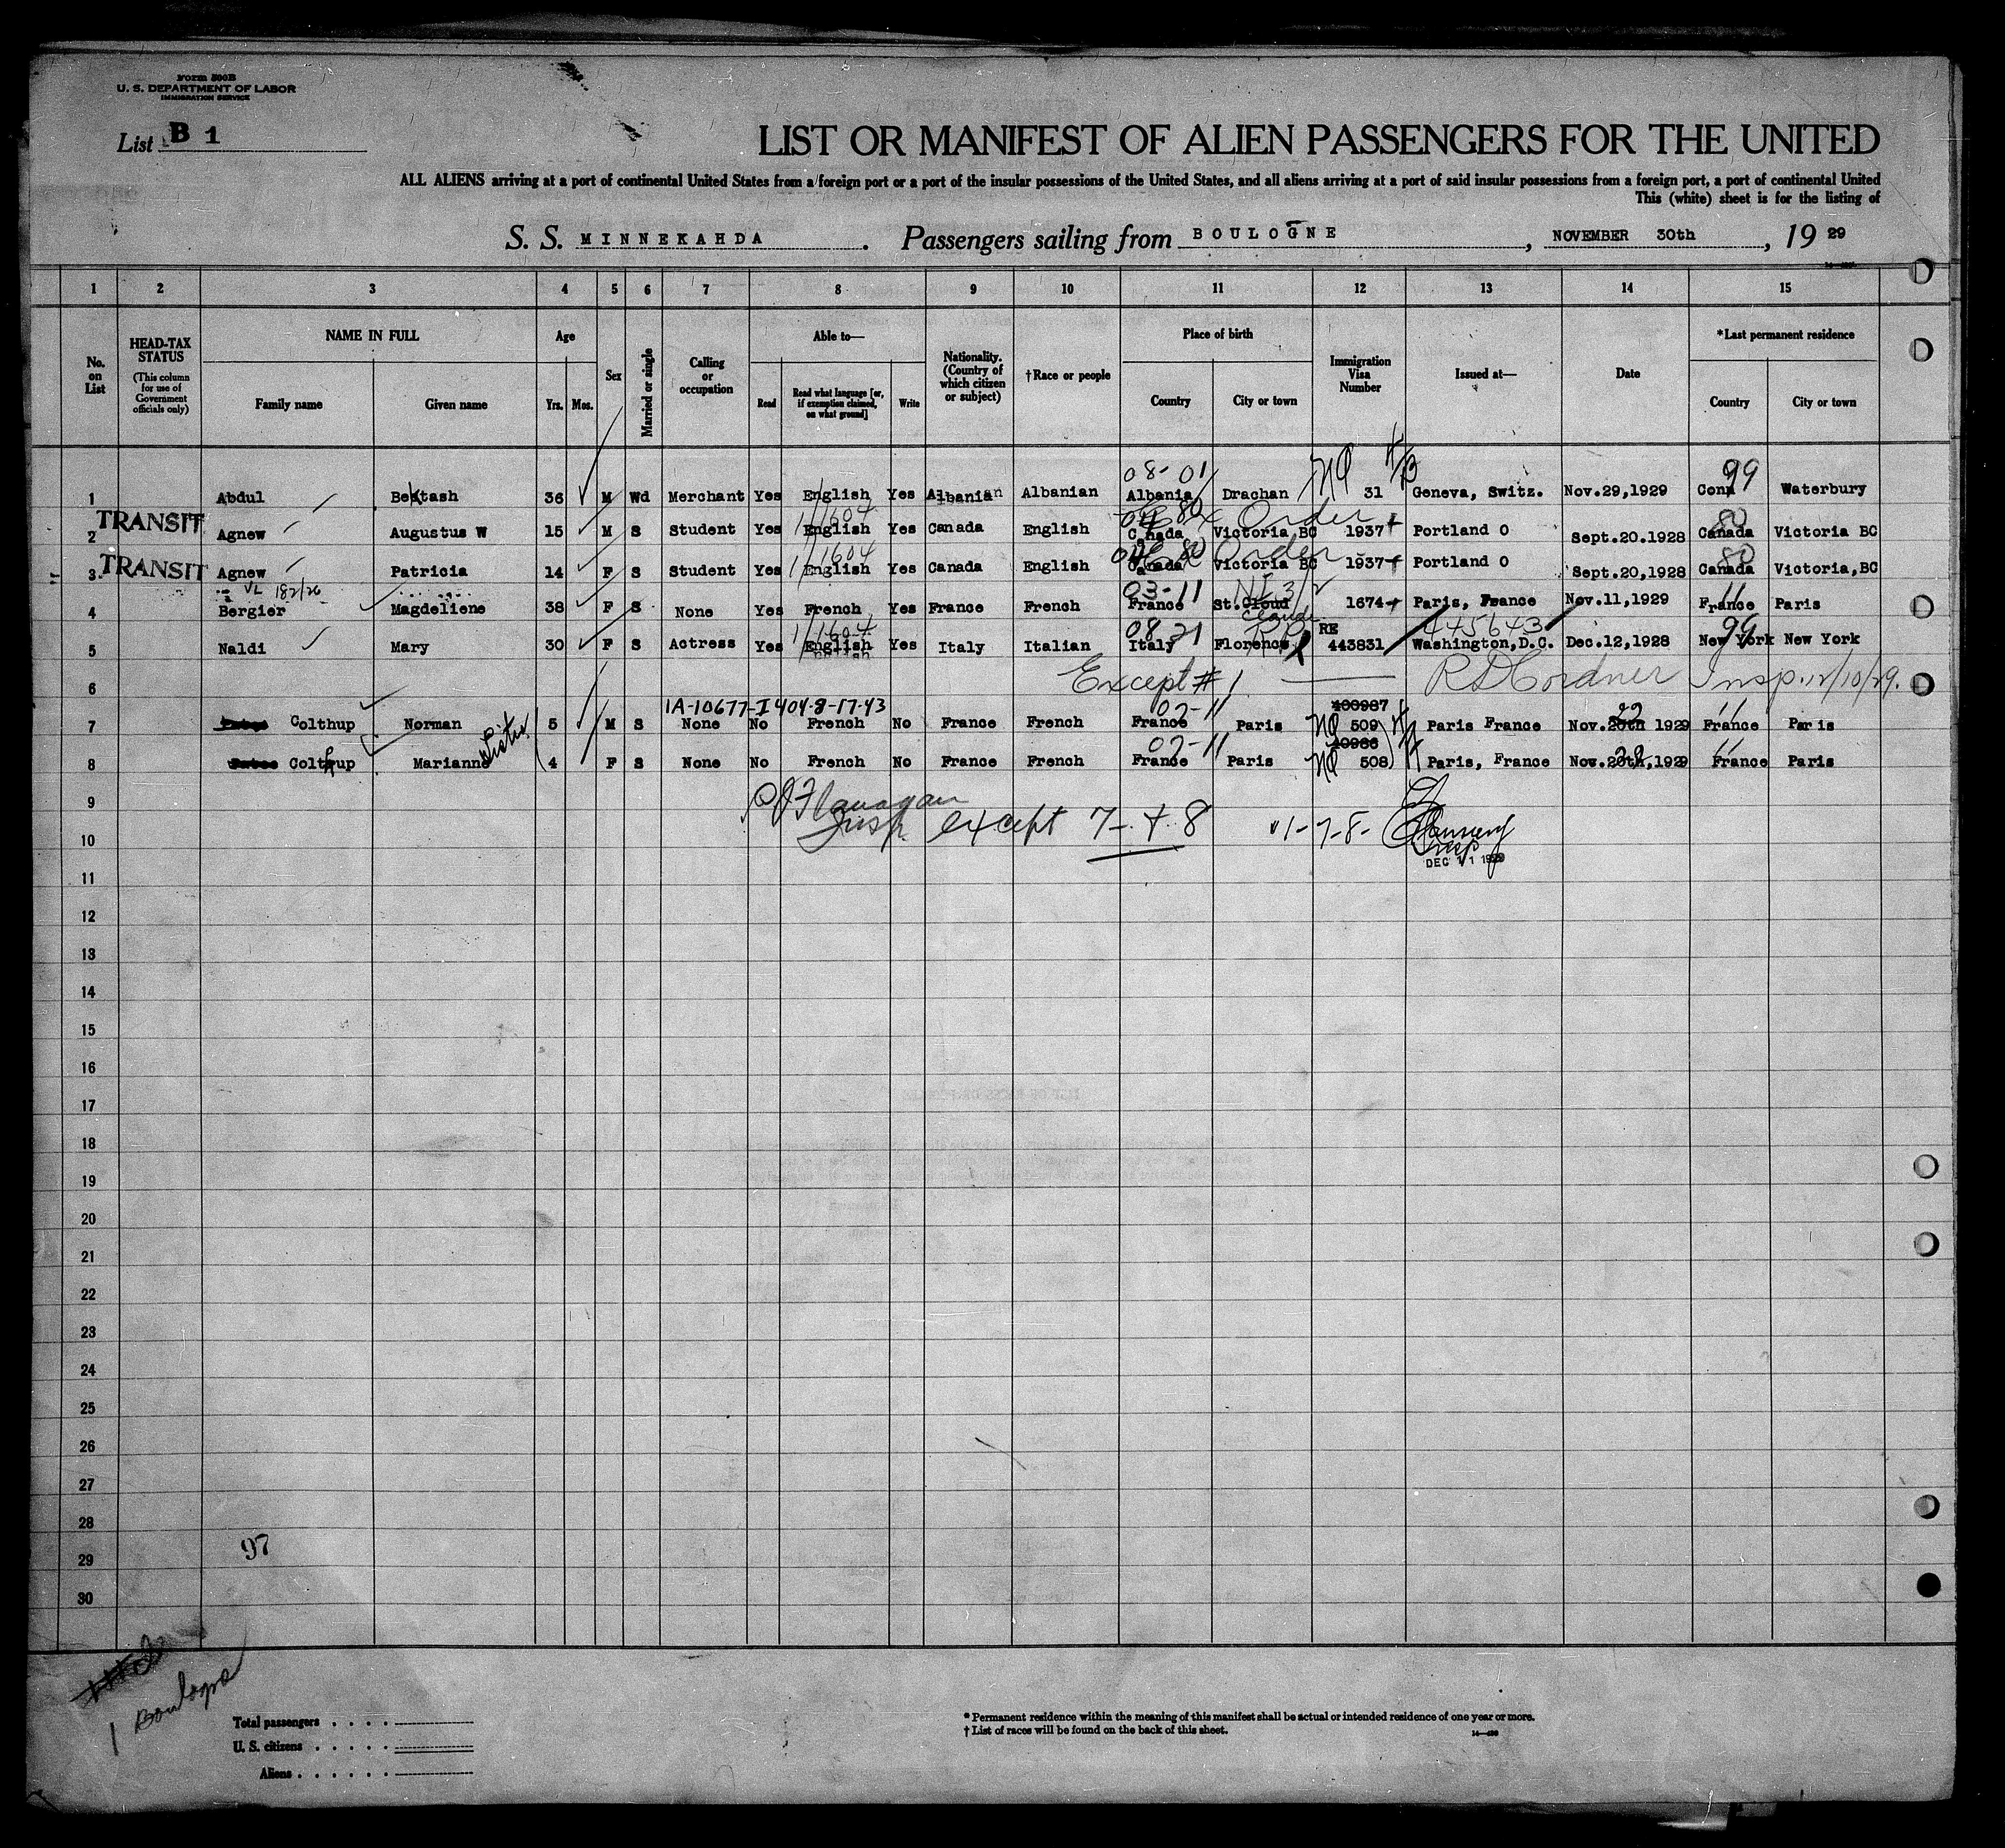 Form 500B
U. S. DEPARTMENT OF LABOR
IMMIGRATION SERVICE
List B 1
LIST OR MANIFEST OF ALIEN PASSENGERS FOR THE UNITED
ALL ALIENS arriving at a port of continental United States from a foreign port or a port of the insular possessions of the United States, and all aliens arriving at a port of said insular possessions from a foreign port, a port of continental United
This (white) sheet is for the listing of
S. S. MINNEKAHDA. Passengers sailing from BOULOGNE, NOVEMBER 30th, 19 29
1 2 3 4 5 6 7 8 9 10 11 12 13 14 15
No. on List
HEAD-TAX STATUS
(This column for use of Government officials only)
NAME IN FULL
Family name Given name
Age
Yrs. Mos.
Sex
Married or single
Calling or occupation
Able to—
Read Read what language [or, if exemption claimed, on what ground] Write
Nationality. (Country of which citizen or subject)
†Race or people
Place of birth
Country City or town
Immigration Visa Number
Issued at—
Date
*Last permanent residence
Country City or town
08-01 99
1 Abdul Bektash 36 M Wd Merchant Yes English Yes Albanian Albanian Albania Drachan 31 Geneva, Switz. Nov.29,1929 Conn Waterbury
1604 80 Order 80
TRANSIT
2 Agnew Augustus W 15 M S Student Yes English Yes Canada English Canada Victoria BC 1937 Portland O Sept.20.1928 Canada Victoria BC
1604 80 Order 80
TRANSIT
3 Agnew Patricia 14 F S Student Yes English Yes Canada English Canada Victoria BC 1937 Portland O Sept.20,1928 Canada Victoria,BC
VL 182/26 03-11 11
4 Bergier Magdeliene 38 F S None Yes French Yes France French France St.Cloud Claude 1674 Paris, France Nov.11,1929 France Paris
1604 08 21 RE 445643 99
5 Naldi Mary 30 F S Actress Yes English Yes Italy Italian Italy Florence 443831 Washington,D.C. Dec.12,1928 New York New York
6 Except # 1 R D Cordner Insp. 12/10/29.
1A-10677-I 404-8-17-43 02-11 400987 22 11
7 Colthup Norman 5 M S None No French No France French France Paris 509 Paris France Nov.20th 1929 France Paris
Sister 02-11 40986 11
8 Colthup Marianne 4 F S None No French No France French France Paris 508 Paris, France Nov.20th,1929 France Paris
9 Flanagan
Insp. except 7 + 8 1-7-8- Insp
10
DEC 11 1929
11
12
13
14
15
16
17
18
19
20
21
22
23
24
25
26
27
28
97
29
30
1 Boulogne
Total passengers
U. S. citizens
Aliens
* Permanent residence within the meaning of this manifest shall be actual or intended residence of one year or more.
† List of races will be found on the back of this sheet.